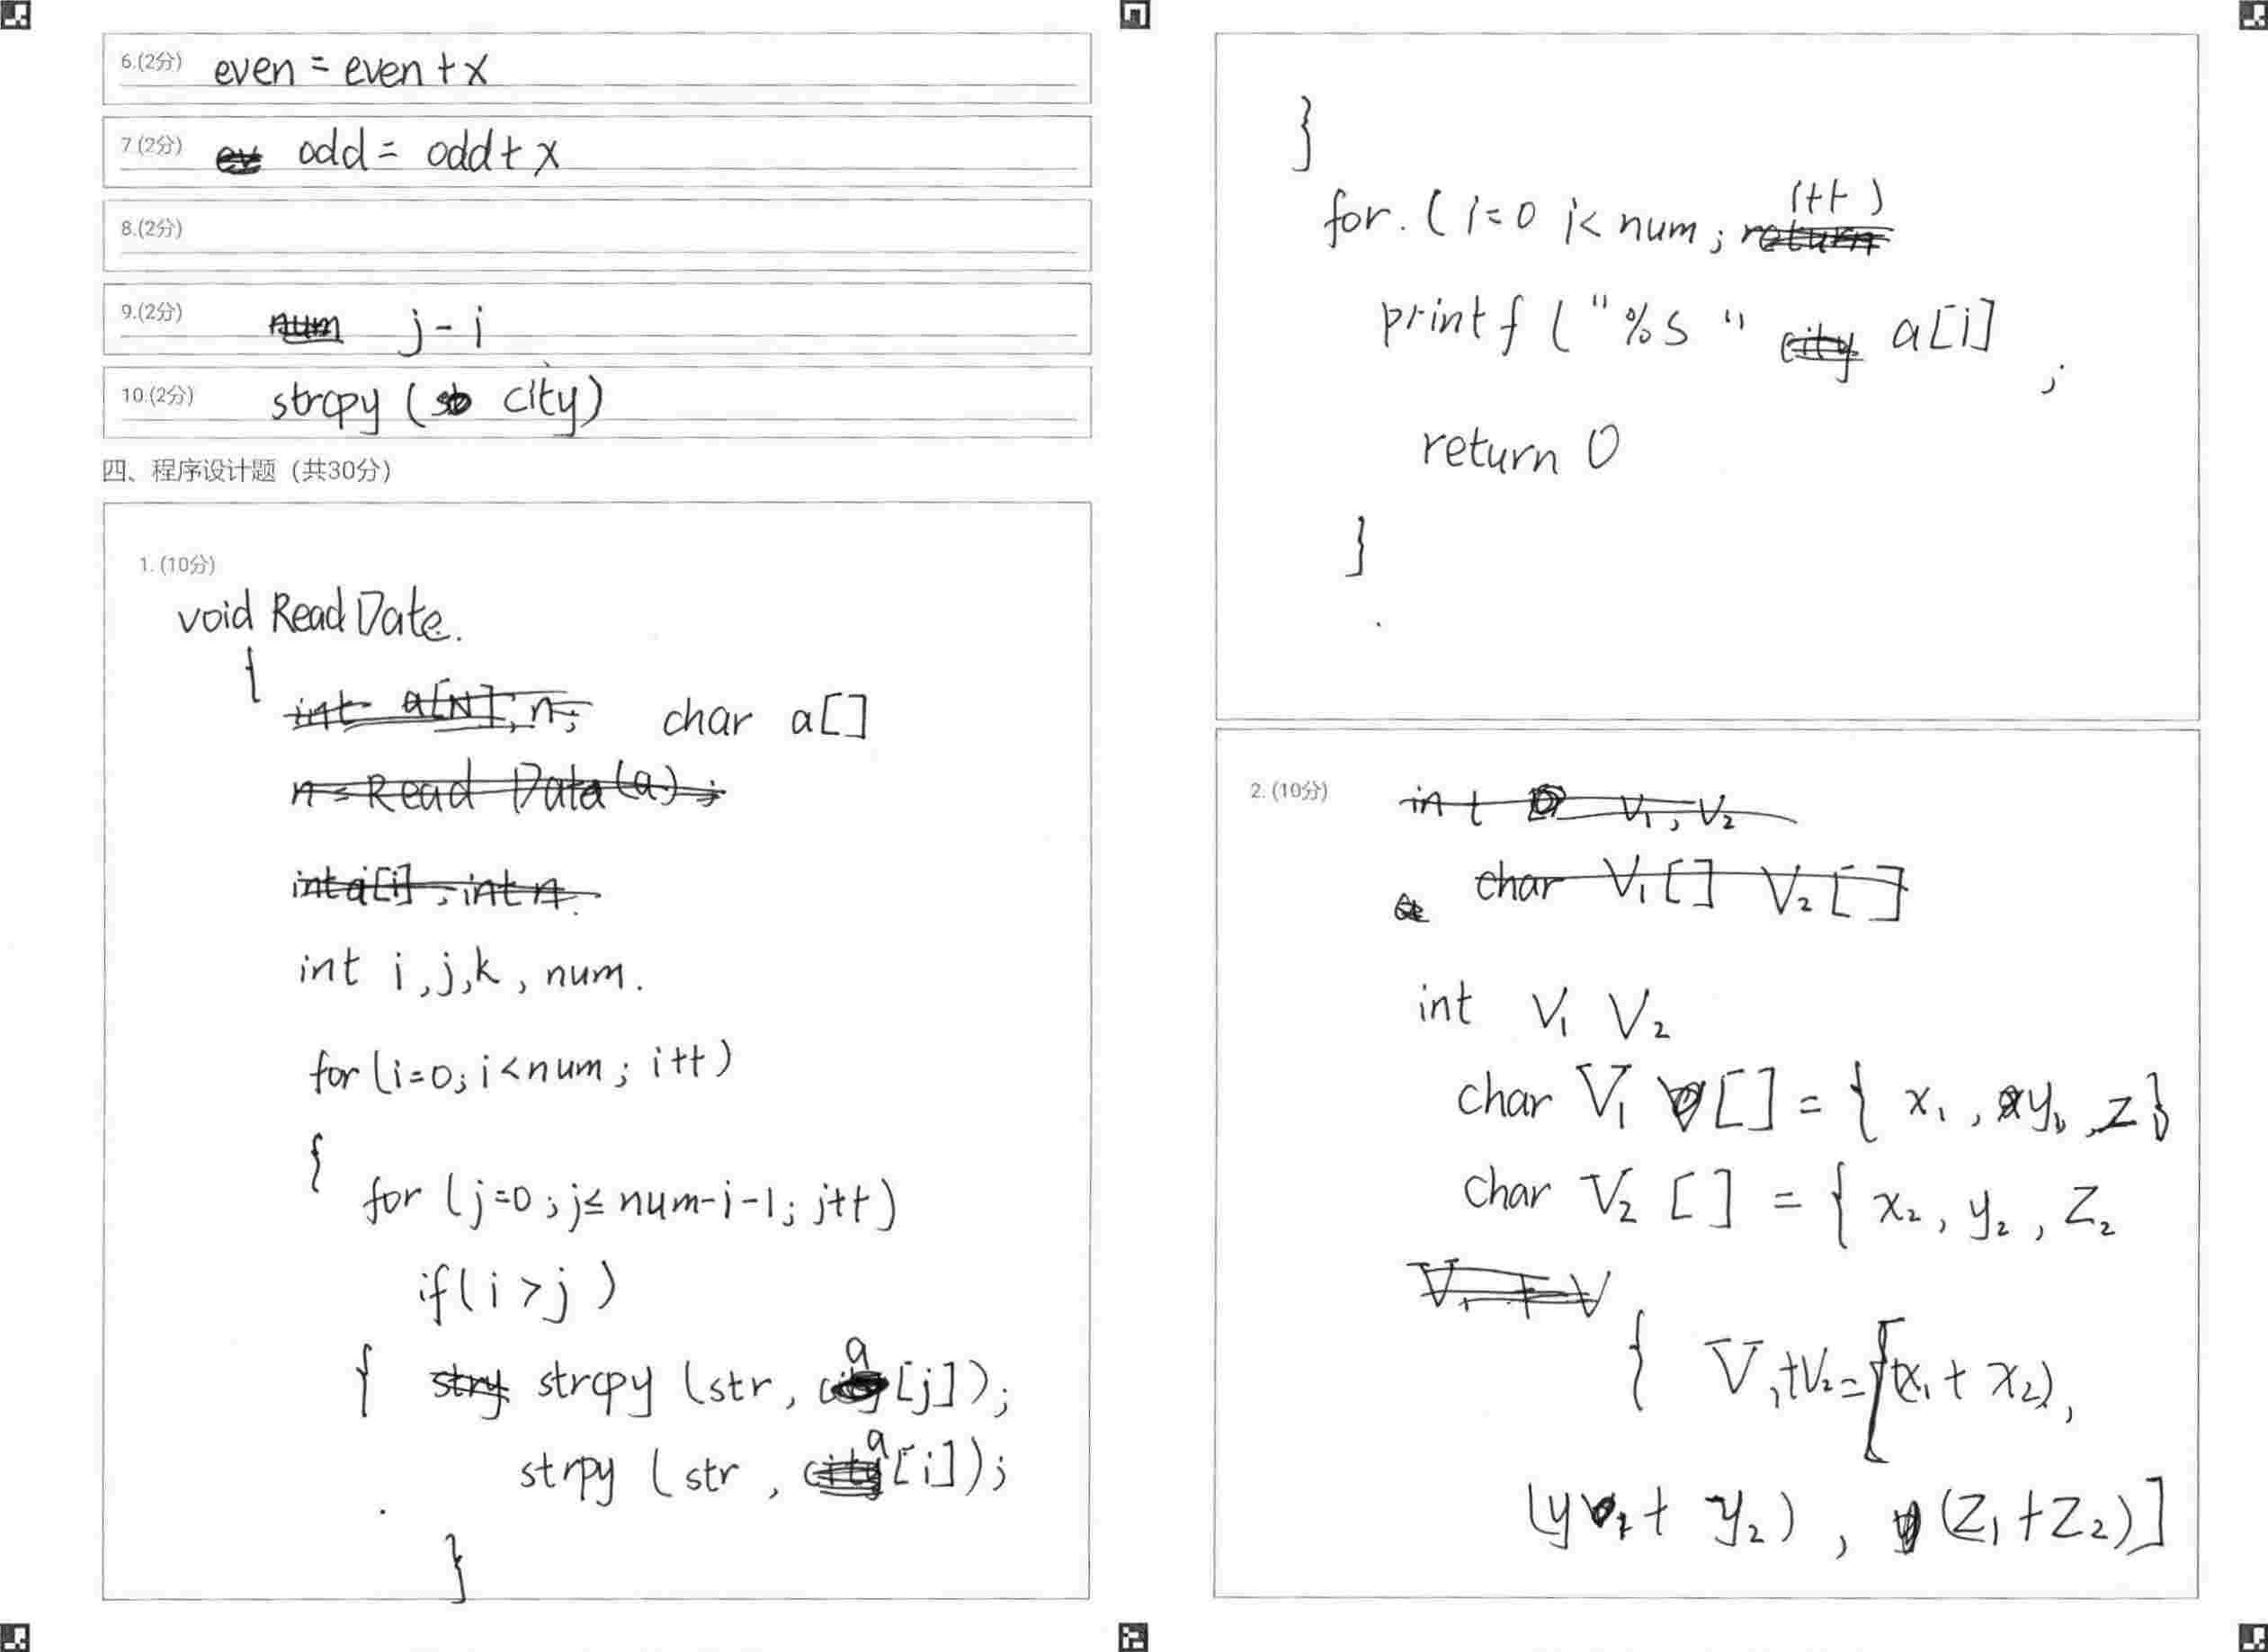 6.(2分) even = even + x
7.(2分) odd = odd + x
8.(2分)
9.(2分) j - i
10.(2分) strcpy ( city)
四、程序设计题 (共30分)
1. (10分)
void Read Date.
{
char a[]
int i, j, k, num.
for (i=0; i<num; i++)
{
for (j=0; j≤ num-i-1; j++)
if( i > j )
{ strcpy (str, a[j]);
strpy (str, a[i]);
}
}
for. ( i=0 i< num; i++ )
printf ( "%s " a[i] ;
return 0
}
2. (10分)
int V₁ V₂
char V₁ [] = { x₁, y₁, z}
char V₂ [] = { x₂, y₂, Z₂
{ V₁+V₂=[(x₁+ x₂),
(y₁+ y₂), (Z₁+Z₂)]